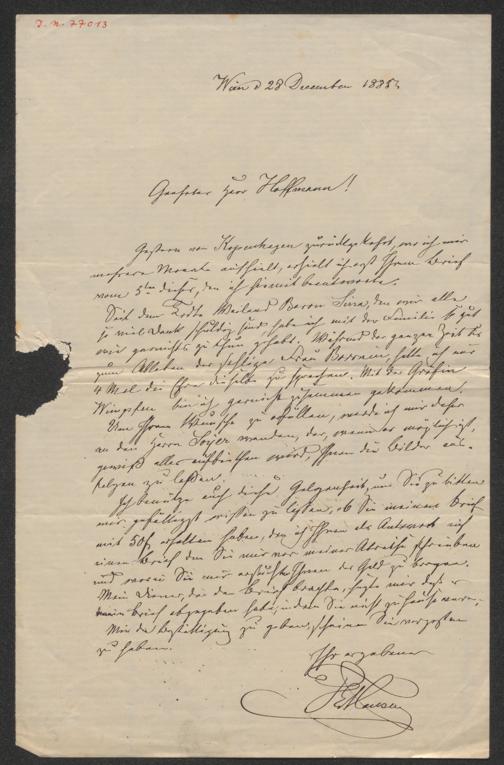 J. N. 77013
Wien d 28 December 1885.
Geehrter Herr Hoffmann!
Gestern von Kopenhagen zurückgekehrt, wo ich mir
mehrere Monate aufhielt, erhielt ich erst Ihren Brief
vom 5ten dieses, den ich hiermit beantworte.
Seit dem Tode Weiland Baron Sina, dem wir alle
so viel Dank schuldig sind, habe ich mit der Familie so gut
wie garnichts zu thun gehabt. Während der ganzen Zeit bis
zum Ableben der seeligen Frau Baronin, hatte ich nur
4 Mal die Ehre dieselbe zu sprechen. Mit der Gräfin
Wimpffen bin ich garnicht zusammen gekommen.
Um Ihren Wunsche zu erfüllen, werde ich mir daher
an den Herrn wenden, der, wenn es möglich ist,
gewiß alles aufbiethen wird Ihnen die Bilder aus-
folgen zu lassen.
Ich benütze auch diese Gelegenheit, um Sie zu bitten
mir gefälligst wissen zu lassen, ob Sie meinen Brief
mit 50f erhalten haben, den ich Ihnen als Antwort auf
einen Brief den Sie mir vor meiner Abreise schrieben
und worin Sie mir ersuchten Ihnen das Geld zu borgen.
Mein Diener, der den Brief brachte, sagte mir daß er
den Brief abgegeben habe, indem Sie nicht zuhause waren.
Mir die Bestättigung zu geben, scheinen Sie vergessen
zu haben.
Ihr ergebener
Hansen